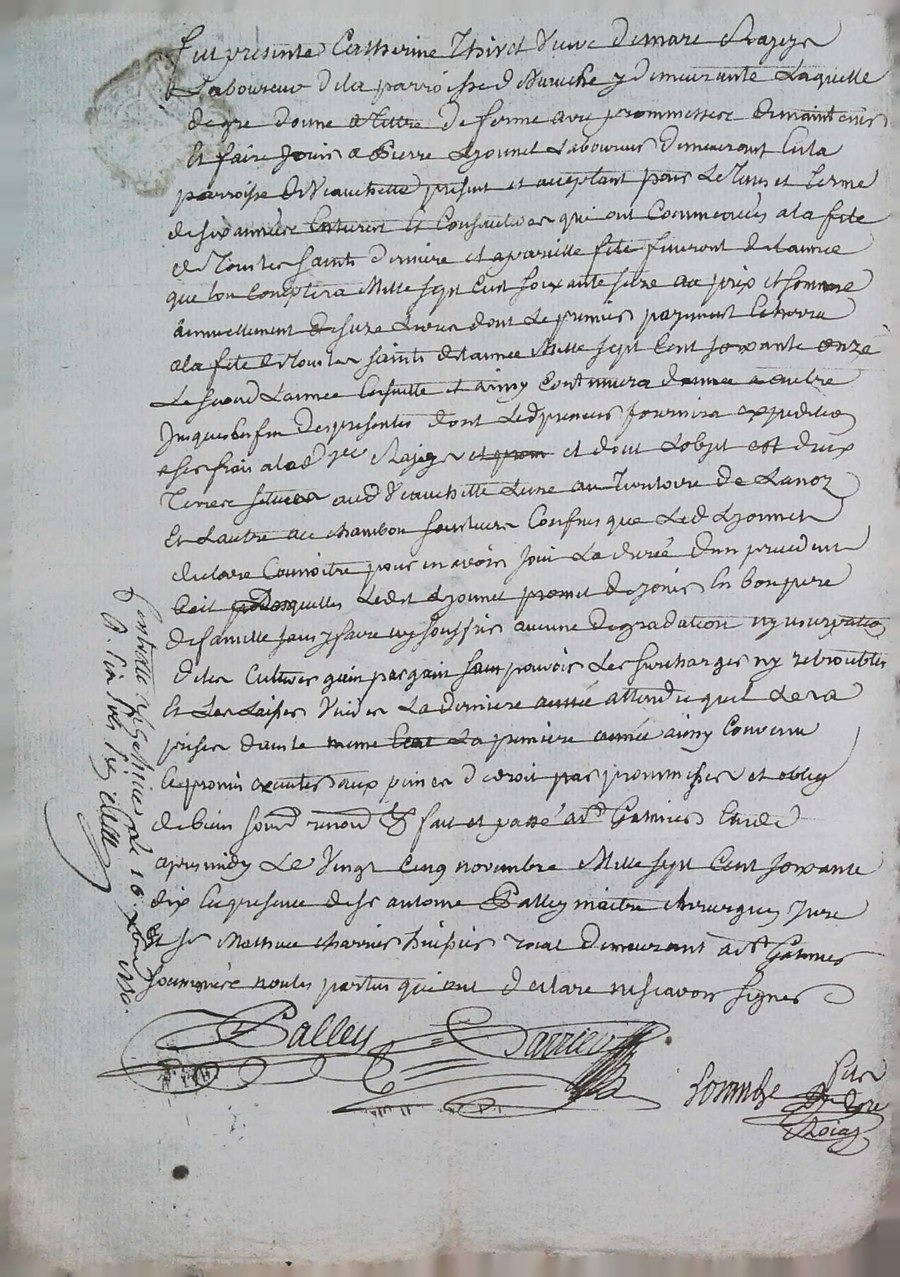 fut presente Catherine Thivet veuve de marc Rajeyz
Laboureur de la parroisse d y demeurante Laquelle
de gre donne a tittre de ferme avec prommesse de maintenir
et faire jouir a Pierre Lyonnet Laboureur demeurant en la
parroisse de Veauchette present et aceptant pour le tems et terme
de six années Entieres et Consecutives qui ont Commencées a la fete
de Tous les Saints derniere et apareille fete finiront de lannée
que lon Comptera Mille sept Cent soixante seize au prix et somme
annuellement de seize Livres dont Le premier payement Echerra
a la fete de Tous les saints de lannée Mille sept Cent soixante onze
Le second Lannée Ensuitte et ainsy Continuera dannée a autre
jusques En fin des presentes dont Led preneur fournira expedition
a ses frais a lad Rajeyz et dont Lobjet est deux
Terres situées aud Veauchette Lune au Territoire de Lanoz
Et Lautre au chambon Confins que Led Lyonnet
declare Connoitre pour en avoir joui La durée dun precedent
bail desquelles Ledit Lyonnet promet de jouir En bon pere
de famille sans y faire ny souffrir aucune degradation ny usurpation
de les Cultiver gain par gain sans pouvoir Les surcharger ny retroubler
Et Les Laisser Vuides La derniere année attendu quil Les a
prises dans le meme Etat La premiere année ainsy Convenu
Et promis executer aux peines de droit par prommesses et oblig
de biens soum renon &c fait et passé a St Galmier Etude
apres midy Le Vingt Cinq novembre Mille sept Cent soixante
dix En presence de sr antoine Palley maitre chirurgien juré
Et sr Mathieu Charrier huissier roial demeurant a St Galmier
soussignés non les parties qui ont declaré ne scavoir signer
Palley
Charrier
No re
Roial
Controllé a St Galmier Le